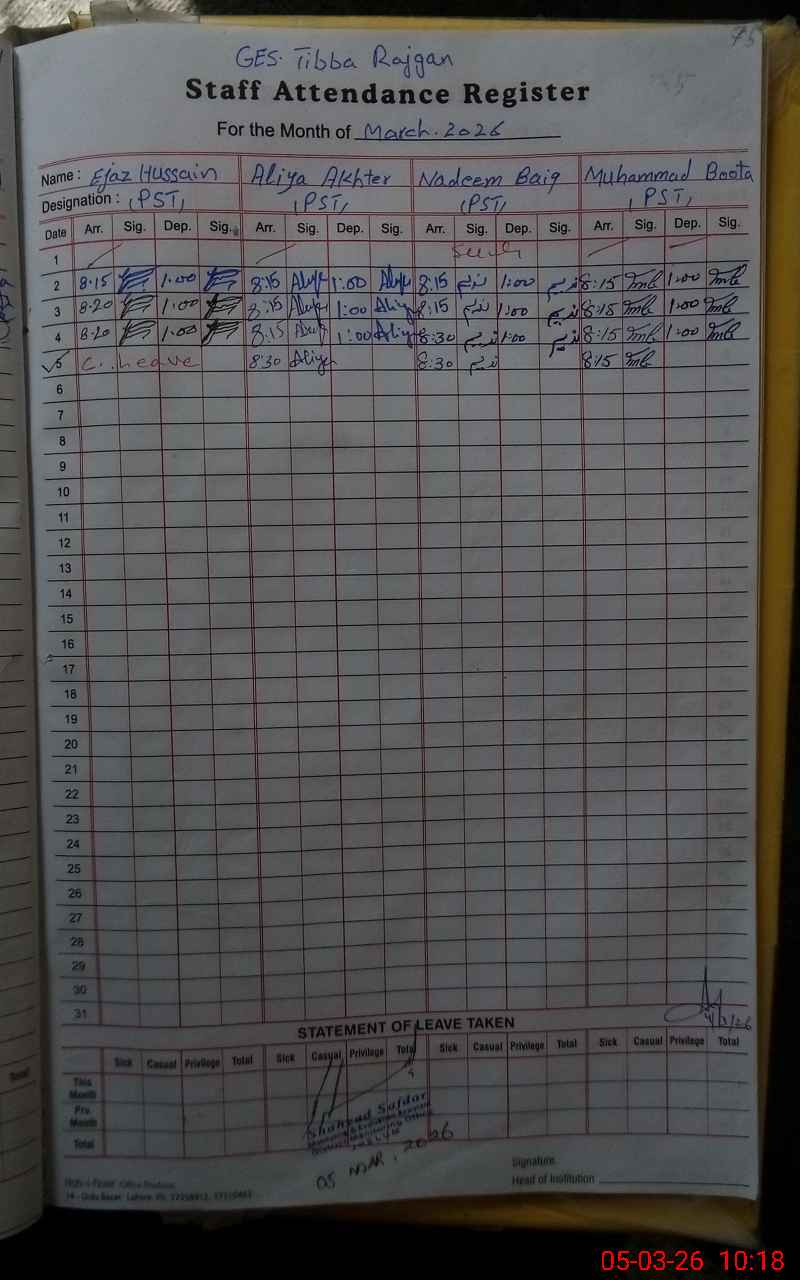 75
GES. Tibba Rajgan
Staff Attendance Register
For the Month of March. 2026
Name : Ejaz Hussain Aliya Akhter Nadeem Baig Muhammad Boota
Designation : (PST) (PST) (PST) (PST)
Date Arr. Sig. Dep. Sig. Arr. Sig. Dep. Sig. Arr. Sig. Dep. Sig. Arr. Sig. Dep. Sig.
1
2 8·15 1·00 8:15 1:00 8:15 ندیم 1:00 ندیم 8:15 1:00
3 8·20 1·00 8:15 1:00 8:15 ندیم 1:00 ندیم 8:15 1:00
4 8·20 1·00 8:15 1:00 8:30 ندیم 1:00 ندیم 8:15 1:00
5 C. Leave 8:30 Aliya 8:30 ندیم 8:15
6
7
8
9
10
11
12
13
14
15
16
17
18
19
20
21
22
23
24
25
26
27
28
29
30
31
STATEMENT OF LEAVE TAKEN
Sick Casual Privilege Total Sick Casual Privilege Total Sick Casual Privilege Total Sick Casual Privilege Total
This Month
Pre. Month
Total
Shahzad Safdar
05 MAR, 2026
Signature
Head of Institution
05-03-26 10:18